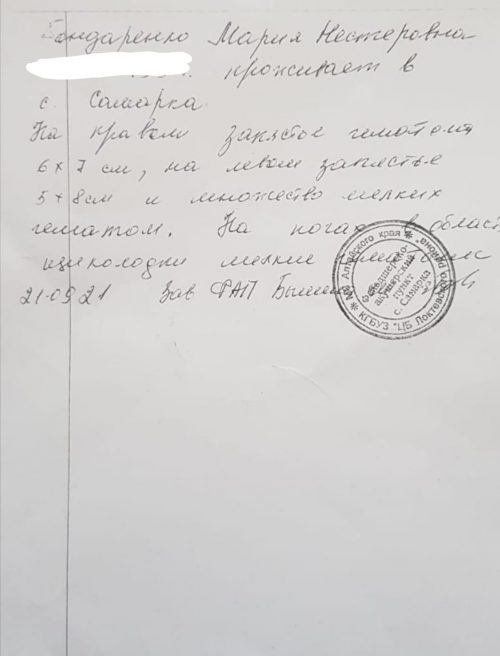 Бондаренко Мария Нестеровна
проживает в
с. Самарка.
На правом запястье гематома
6 x 7 см, на левом запястье
5 x 8 см и множество мелких
гематом. На ногах в област
щиколодки мелкие
21.09.21 Зав ФАП
МЗ Алтайского края ✱ КГБУЗ "ЦБ Локтевского района" ✱
Фельдшерско-
акушерский
пункт
с. Самарка